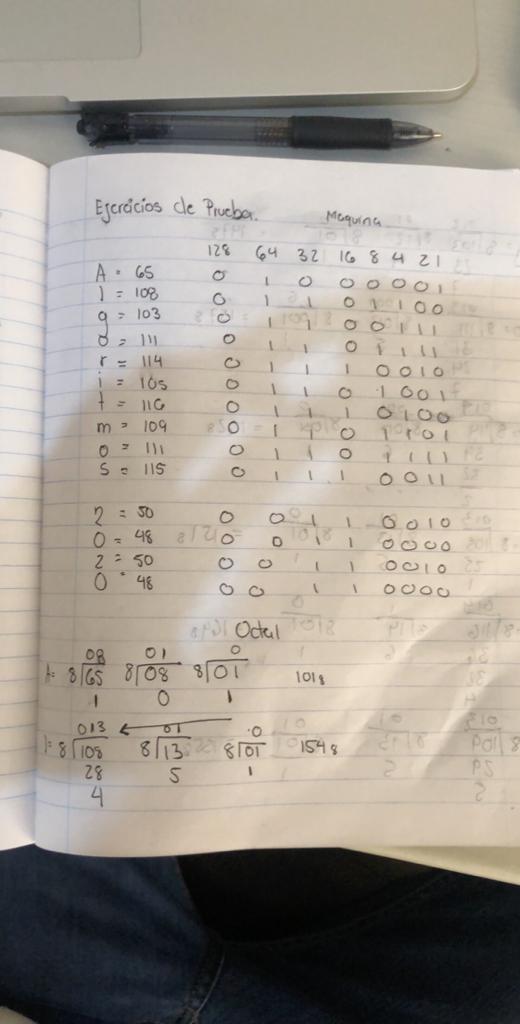 Ejercicios de Prueba. Maquina
128 64 32 16 8 4 2 1
A = 65 0 1 0 0 0 0 0 1
l = 108 0 1 1 0 1 1 0 0
g = 103 0 1 1 0 0 1 1 1
o = 111 0 1 1 0 1 1 1 1
r = 114 0 1 1 1 0 0 1 0
i = 105 0 1 1 0 1 0 0 1
t = 116 0 1 1 1 0 1 0 0
m = 109 0 1 1 0 1 1 0 1
o = 111 0 1 1 0 1 1 1 1
s = 115 0 1 1 1 0 0 1 1
2 = 50 0 0 1 1 0 0 1 0
0 = 48 0 0 1 1 0 0 0 0
2 = 50 0 0 1 1 0 0 1 0
0 = 48 0 0 1 1 0 0 0 0
Octal
08 01 0
A= 8⟌65 8⟌08 8⟌01 101₈
1 0 1
013 01 0
l= 8⟌108 8⟌13 8⟌01 154₈
28 5 1
4